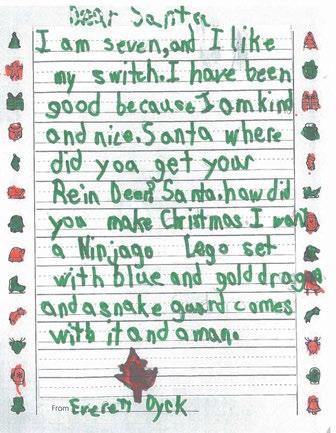 Dear Santa
I am seven, and I like
my switch. I have been
good because I am kind
and nice. Santa where
did yoa get your
Rein Deer? Santa. how did
you make Christmas. I want
a Ninjago Lego set
with blue and gold dragon
and a snake guard comes
with it and a man.
From Everett Dyck